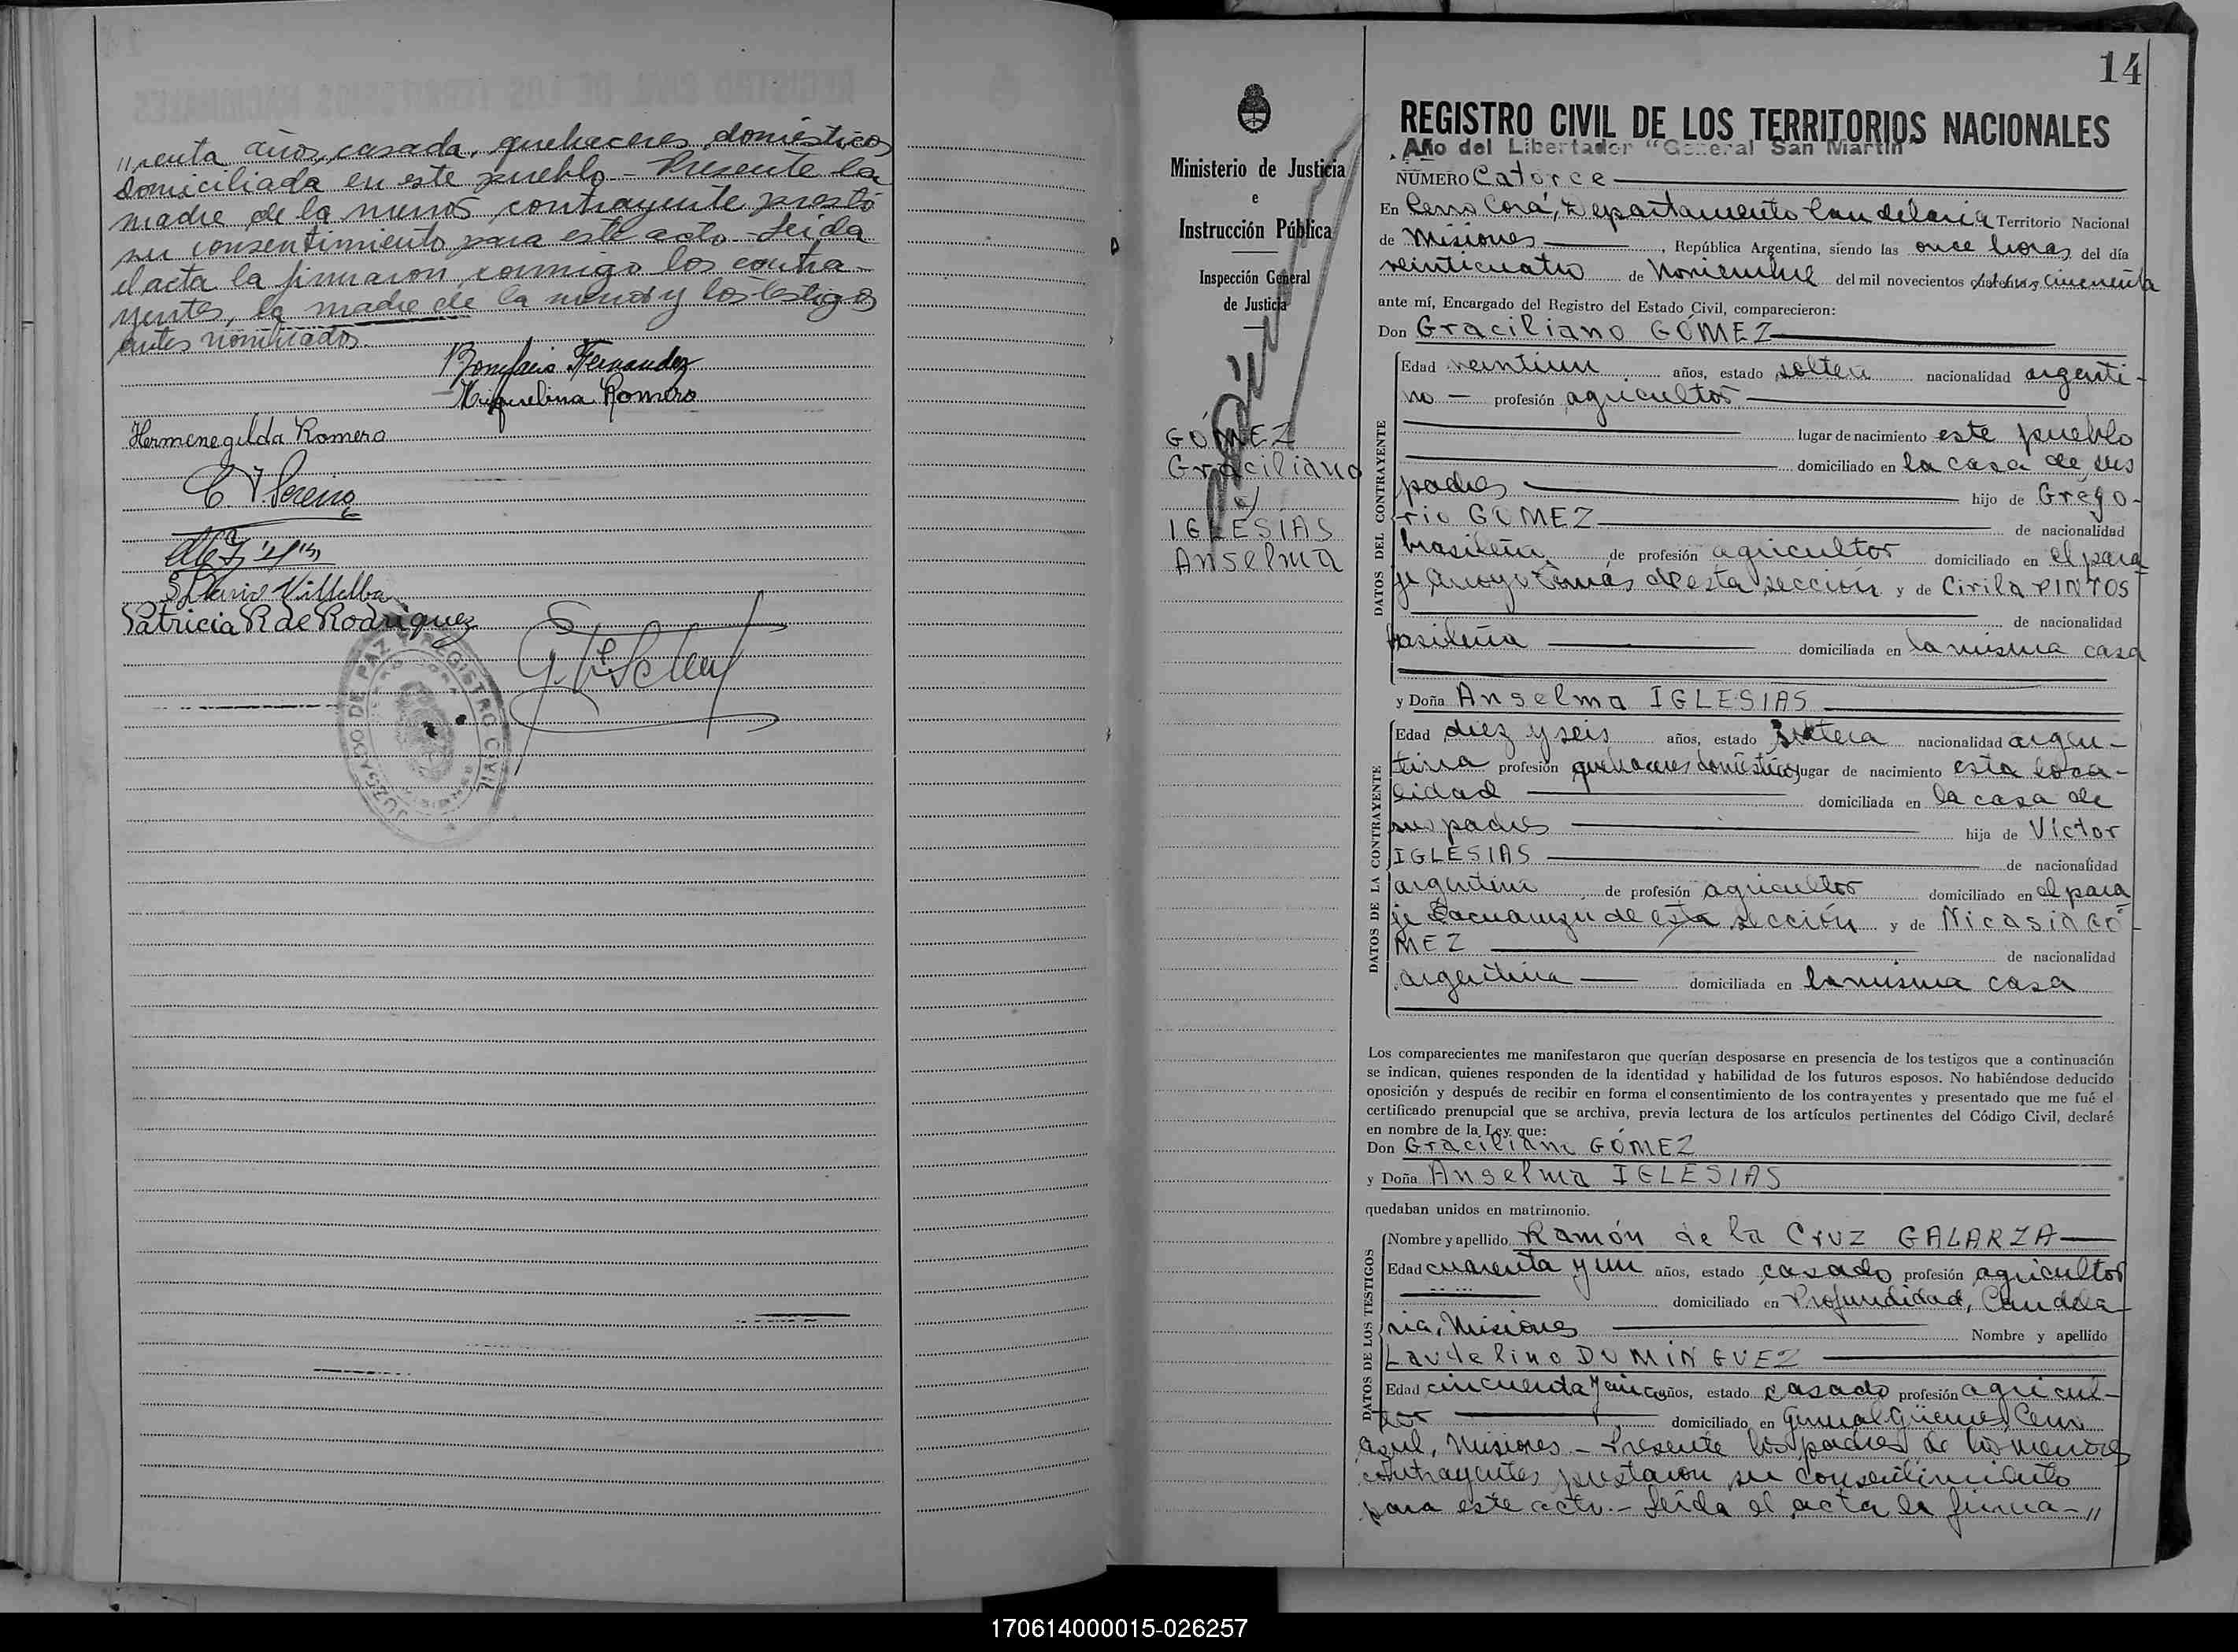 "renta años, casada, quehaceres domésticos
domiciliada en este pueblo - Presente la
madre de la menor contrayente prestó
su consentimiento para este acto - Leída
el acta la firmaron conmigo los contra-
yentes, la madre de la menor y los testigos
antes nombrados.
Bonifacio Fernandez
Miguelina Romero
Hermenegilda Romero
Villalba
Patricia R de Rodriguez
JUZGADO DE PAZ REGISTRO CIVIL
14
REGISTRO CIVIL DE LOS TERRITORIOS NACIONALES
Año del Libertador "General San Martín"
Ministerio de Justicia
e
Instrucción Pública
Inspección General
de Justicia
GÓMEZ
Graciliano
c/
IGLESIAS
Anselma
NÚMERO Catorce
En Cerro Corá, Departamento Candelaria Territorio Nacional
de Misiones, República Argentina, siendo las once horas del día
veinticuatro de Noviembre del mil novecientos cincuenta
ante mí, Encargado del Registro del Estado Civil, comparecieron:
Don Graciliano GÓMEZ
DATOS DEL CONTRAYENTE
Edad veintiun años, estado soltero nacionalidad argenti-
no - profesión agricultor
lugar de nacimiento este pueblo
domiciliado en la casa de sus
padres hijo de Grego-
rio GOMEZ de nacionalidad
brasileña de profesión agricultor domiciliado en el para
je Arroyo Tomás de esta sección y de Cirila PINTOS
de nacionalidad
brasileña domiciliada en la misma casa
y Doña Anselma IGLESIAS
DATOS DE LA CONTRAYENTE
Edad diez y seis años, estado soltera nacionalidad argen-
tina profesión quehaceres domésticos lugar de nacimiento esta loca-
lidad domiciliada en la casa de
sus padres hija de Víctor
IGLESIAS de nacionalidad
argentina de profesión agricultor domiciliado en el para
je de esta sección y de Nicasia GÓ-
MEZ de nacionalidad
argentina domiciliada en la misma casa
Los comparecientes me manifestaron que querían desposarse en presencia de los testigos que a continuación
se indican, quienes responden de la identidad y habilidad de los futuros esposos. No habiéndose deducido
oposición y después de recibir en forma el consentimiento de los contrayentes y presentado que me fué el
certificado prenupcial que se archiva, previa lectura de los artículos pertinentes del Código Civil, declaré
en nombre de la Ley que:
Don Graciliano GÓMEZ
y Doña Anselma IGLESIAS
quedaban unidos en matrimonio.
DATOS DE LOS TESTIGOS
Nombre y apellido Ramón de la Cruz GALARZA
Edad cuarenta y un años, estado casado profesión agricultor
domiciliado en Profundidad, Candela-
ria, Misiones Nombre y apellido
Laudelino DOMINGUEZ
Edad cincuenta y cinco años, estado casado profesión agricul-
tor domiciliado en General Güemes, Cerro
Azul, Misiones - Presente los padres de los menores
contrayentes prestaron su consentimiento
para este acto. - Leída el acta la firma-"
170614000015-026257